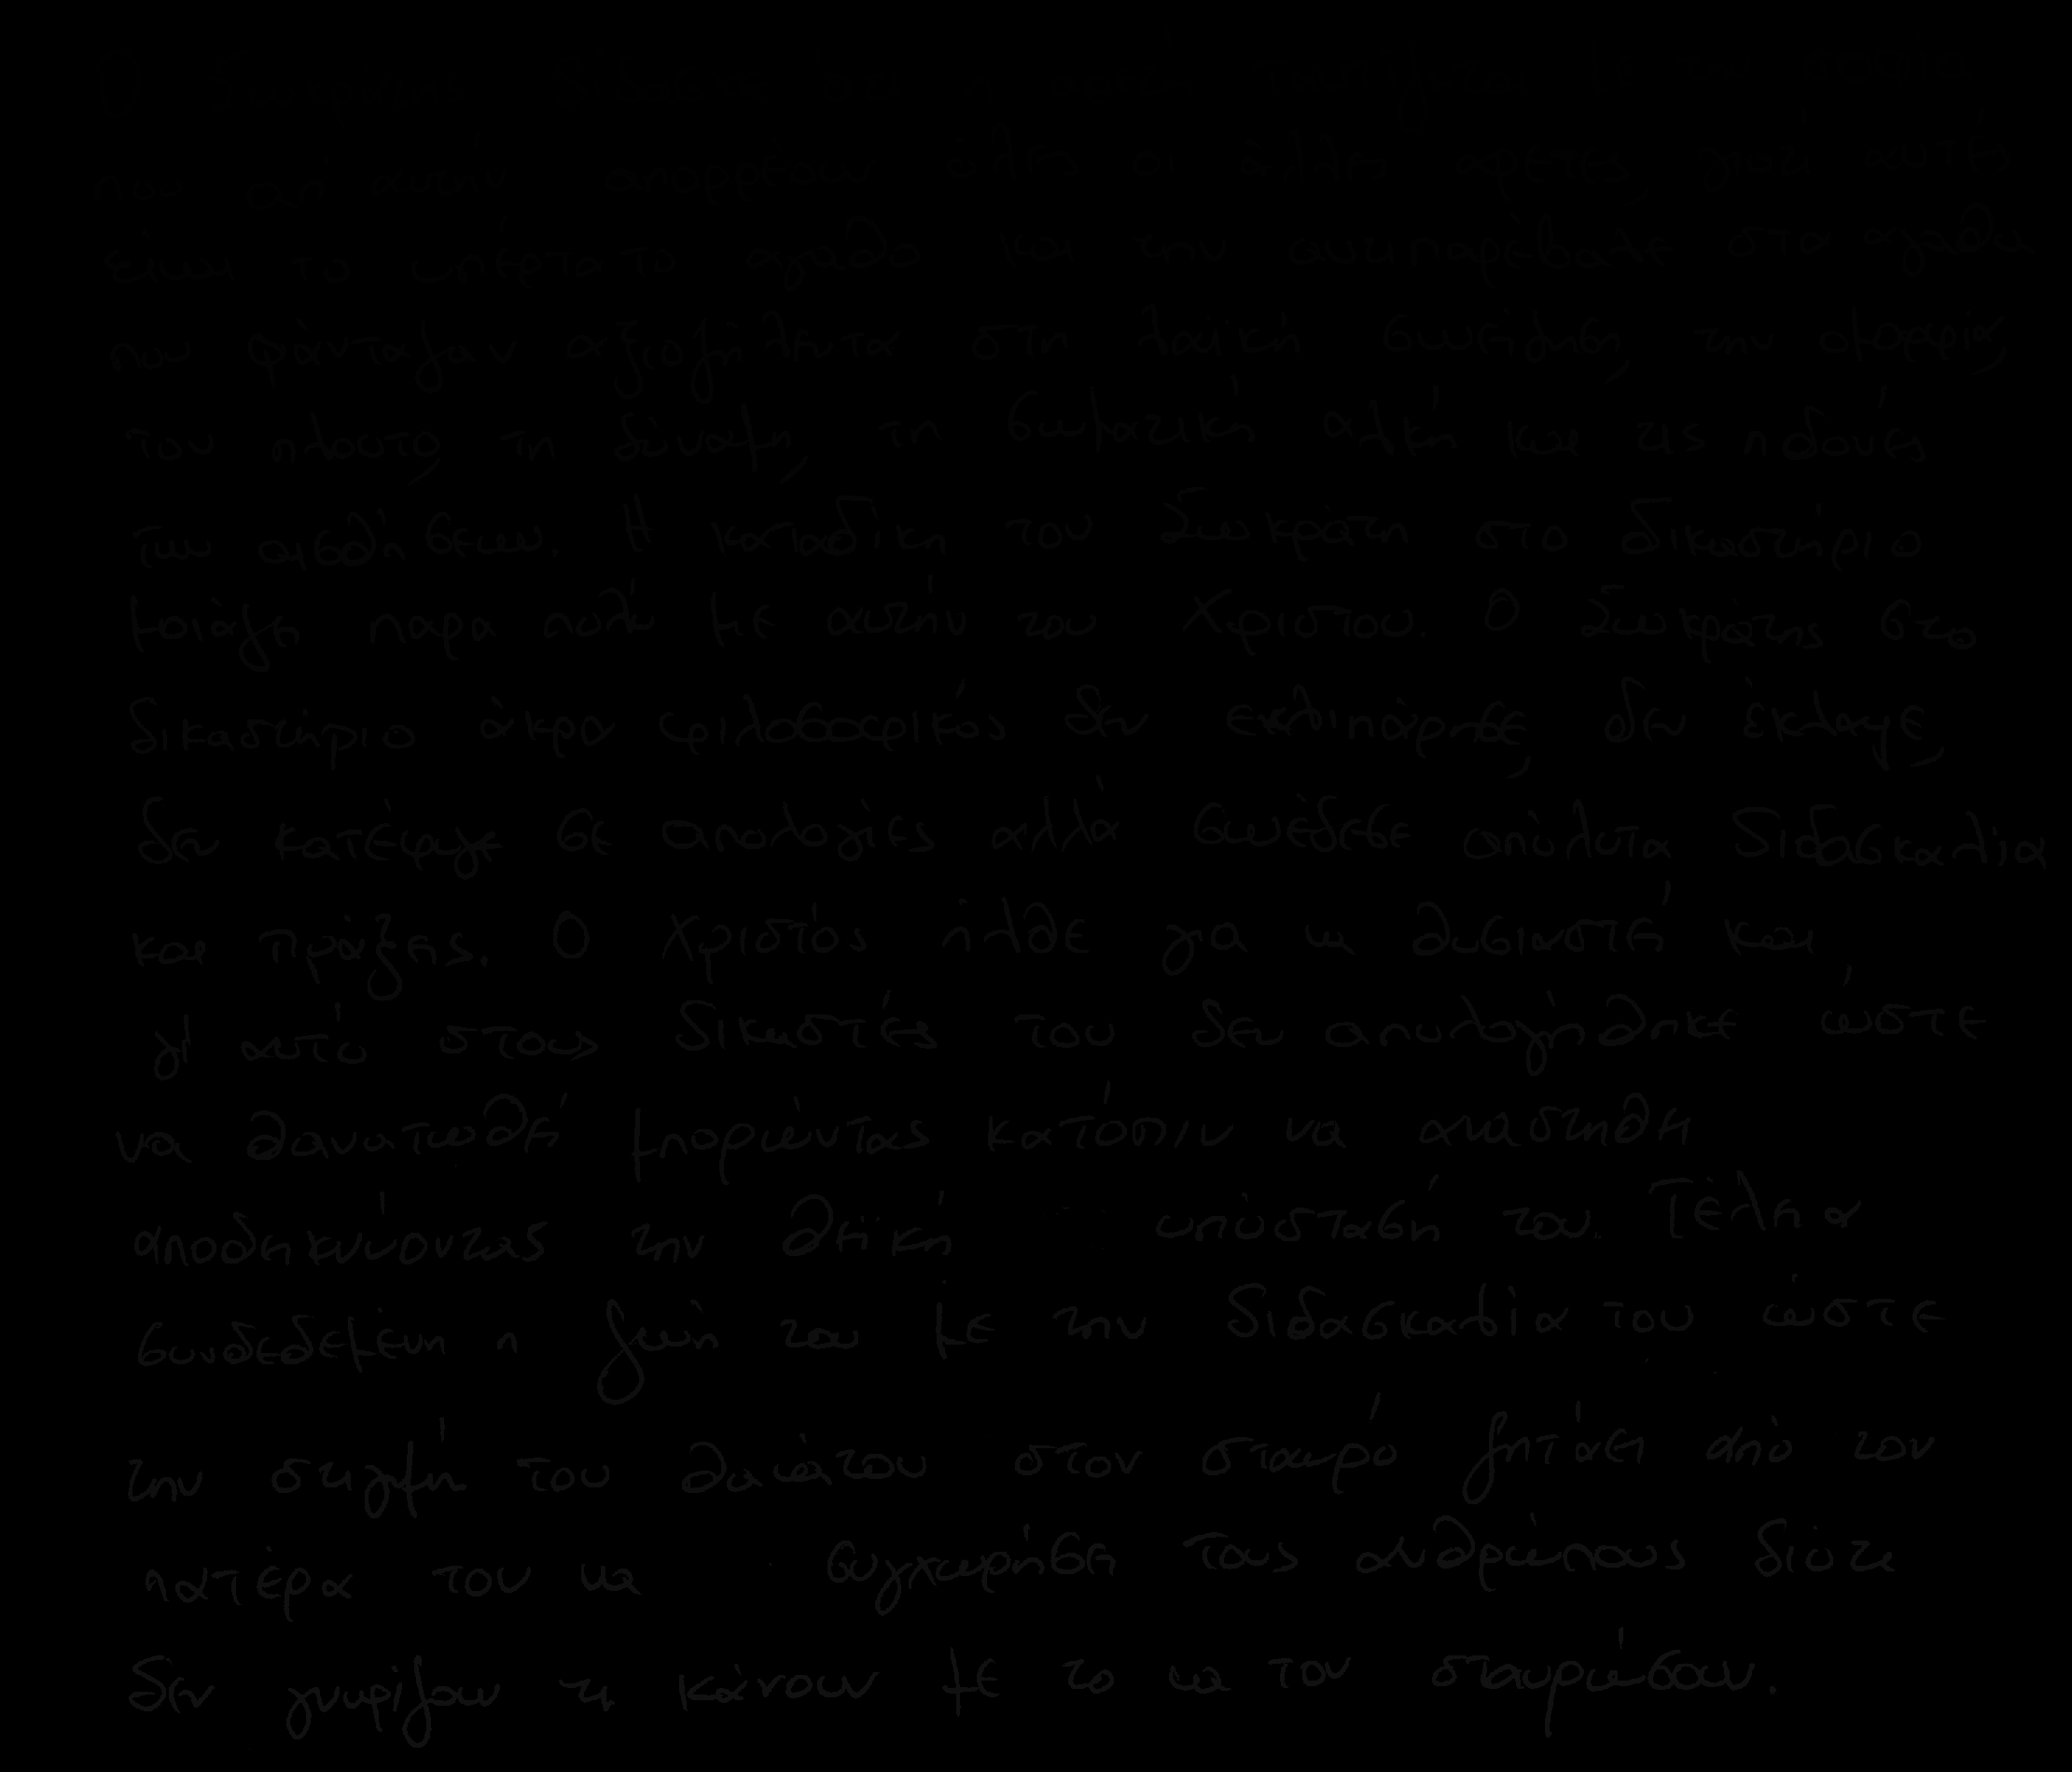 που απ' αυτήν απορρέουν όλες οι άλλες αρετές, γιατί αυτές
είναι το υπέρτατο αγαθό και την αντιπαρέβαλε στα αγαθά
που φάνταζαν αξιοζήλευτα στη λαϊκή συνείδηση, την ομορφιά,
τον πλούτο, τη δύναμη, τη σωματική αλκή και τις ηδονές
των αισθήσεων. Η καταδίκη του Σωκράτη στο δικαστήριο
μοιάζει παρα πολύ με αυτήν του Χριστου. Ο Σωκράτης στο
δικαστήριο άκρα φιλοσοφικός δεν εκλιπάρησε, δεν έκλαψε,
δεν κατέφυγε σε απολογίες αλλά συνέδεσε απόλυτα διδασκαλία
και πράξεις. Ο Χριστός ήλθε για να θυσιαστεί και
γι' αυτό στους δικαστές του δεν απολογήθηκε ώστε
να θανατωθεί μπορώντας κατόπιν να αναστηθεί
αποδεικνύοντας την θεϊκή υπόστασή του. Τέλεια
συνδεδεμένη η ζωή του με την διδασκαλία του ώστε
την στιγμή του θανάτου στον σταυρό ζητάει από τον
πατέρα του να συγχωρήσει τους ανθρώπους διότι
δεν γνωρίζουν τι κάνουν με το να τον σταυρώσουν.